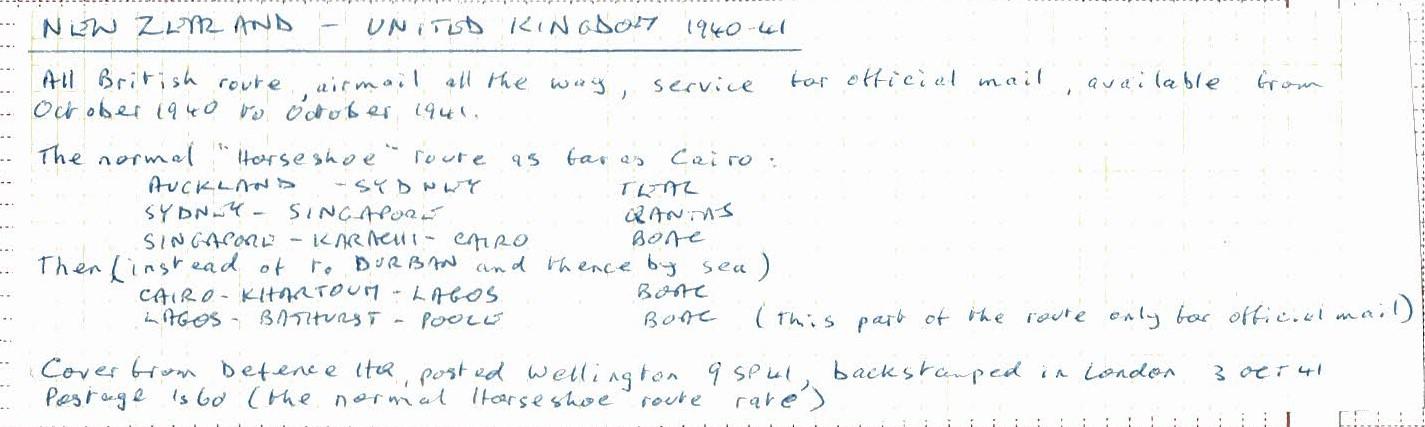 NEW ZEALAND - UNITED KINGDOM 1940-41
All British route, airmail all the way, service for official mail, available from
October 1940 to October 1941.
The normal "Horseshoe" route as far as Cairo:
AUCKLAND - SYDNEY TEAL
SYDNEY - SINGAPORE QANTAS
SINGAPORE - KARACHI - CAIRO BOAC
Then (instead of to DURBAN and thence by sea)
CAIRO - KHARTOUM - LAGOS BOAC
LAGOS - BATHURST - POOLE BOAC (This part of the route only for official mail)
Cover from Defence HQ, posted Wellington 9 SP 41, backstamped in London 3 OCT 41
Postage 1s 6d (the normal Horseshoe route rate)